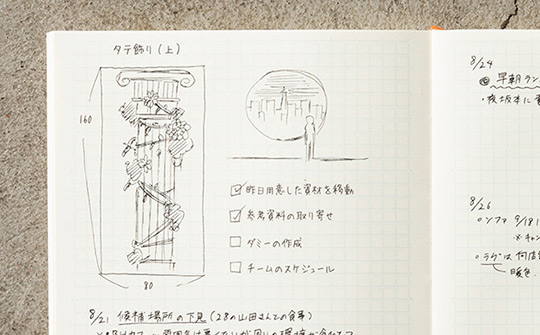 タテ飾り(上)
160
80
昨日用意した資材を移動
参考資料の取り寄せ
ダミーの作成
チームのスケジュール
8/21 候補場所の下見(28の山田さんでの食事)
8/24
早朝ラン
8/26
ソファ 9/18
ラグは何店
暖色